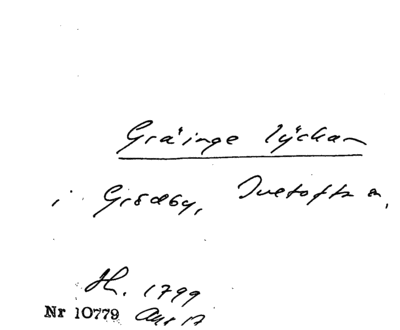 Gräinge lyckan
i Grödby, Tvetofta s.,
H. 1799
Nr 10779